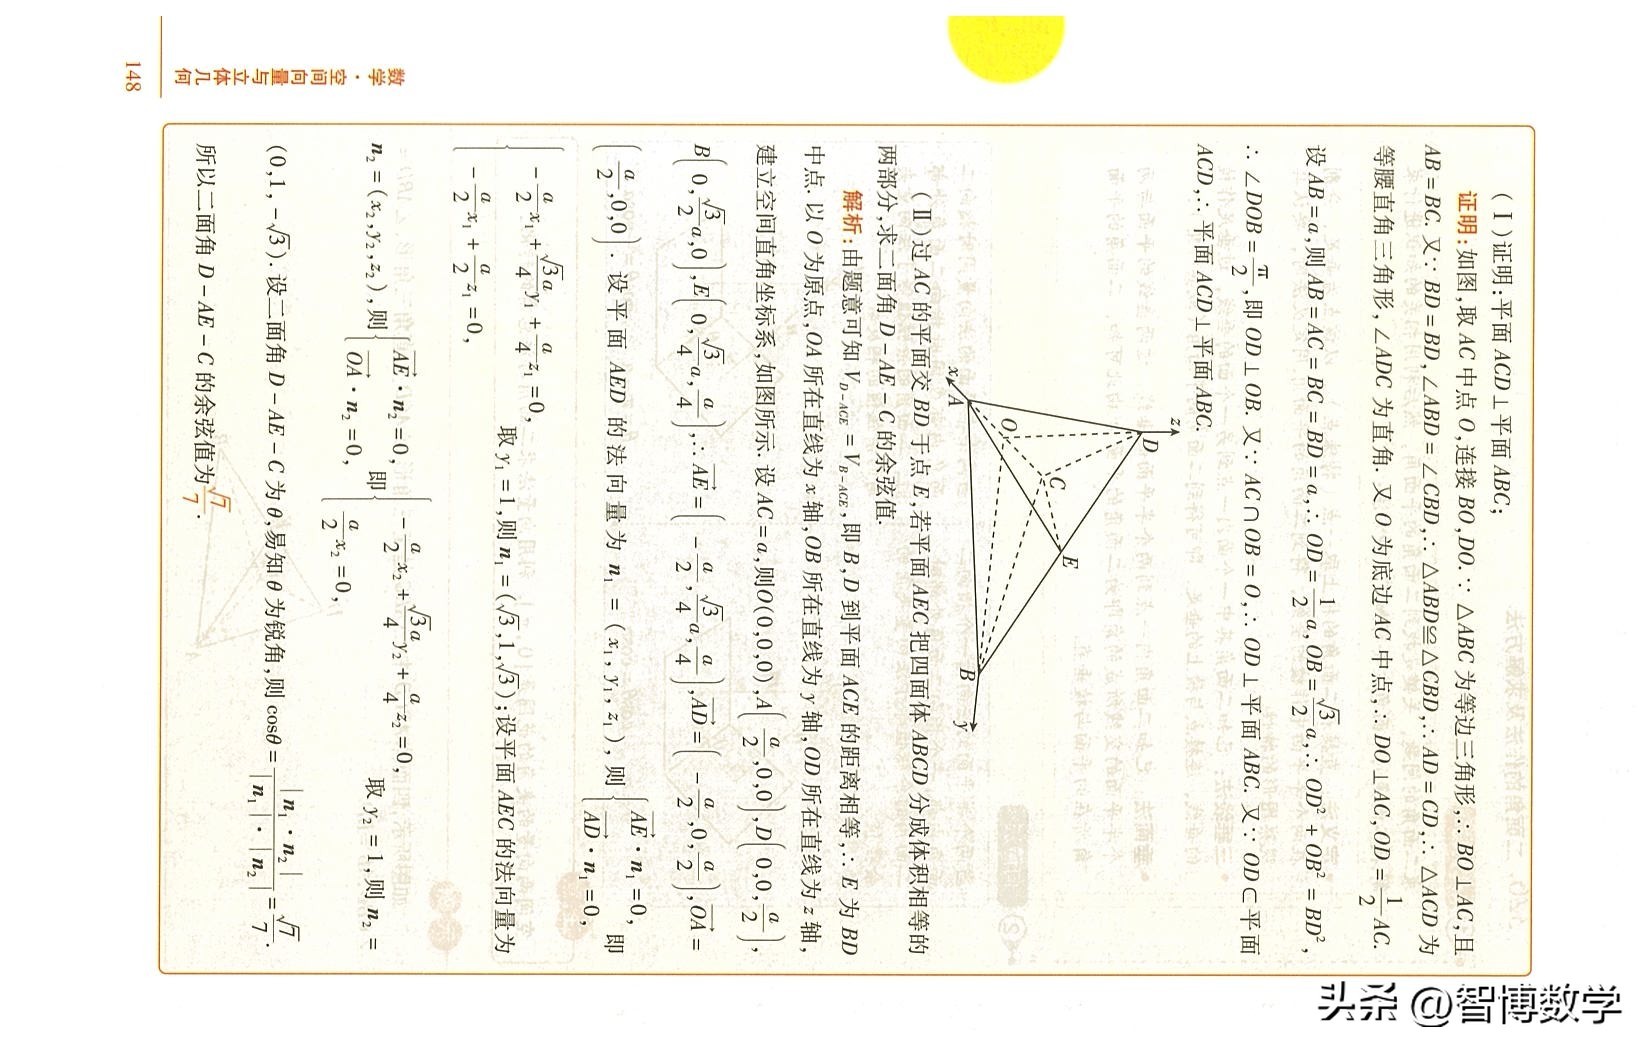 148
数学·空间向量与立体几何
(Ⅰ)证明:平面 ACD⊥平面 ABC;
证明:如图,取 AC 中点 O,连接 BO,DO.∵△ABC 为等边三角形,∴BO⊥AC,且
AB=BC.又∵BD=BD,∠ABD=∠CBD,∴△ABD≌△CBD,∴AD=CD,∴△ACD 为
等腰直角三角形,∠ADC 为直角.又 O 为底边 AC 中点,∴DO⊥AC,OD=\frac{1}{2}AC.
设 AB=a,则 AB=AC=BC=BD=a,∴OD=\frac{1}{2}a,OB=\frac{\sqrt{3}}{2}a,∴OD²+OB²=BD²,
∴∠DOB=\frac{π}{2},即 OD⊥OB.又∵AC∩OB=O,∴OD⊥平面 ABC.又∵OD⊂平面
ACD,∴平面 ACD⊥平面 ABC.
z
D
x
A
O
C
E
B
y
(Ⅱ)过 AC 的平面交 BD 于点 E,若平面 AEC 把四面体 ABCD 分成体积相等的
两部分,求二面角 D-AE-C 的余弦值.
解析:由题意可知 V_{D-ACE}=V_{B-ACE},即 B,D 到平面 ACE 的距离相等,∴E 为 BD
中点.以 O 为原点,OA 所在直线为 x 轴,OB 所在直线为 y 轴,OD 所在直线为 z 轴,
建立空间直角坐标系,如图所示.设 AC=a,则O(0,0,0),A(\frac{a}{2},0,0),D(0,0,\frac{a}{2}),
B(0,\frac{\sqrt{3}}{2}a,0),E(0,\frac{\sqrt{3}}{4}a,\frac{a}{4}),∴\overrightarrow{AE}=(-\frac{a}{2},\frac{\sqrt{3}}{4}a,\frac{a}{4}),\overrightarrow{AD}=(-\frac{a}{2},0,\frac{a}{2}),\overrightarrow{OA}=
(\frac{a}{2},0,0).设平面 AED 的法向量为 n₁=(x₁,y₁,z₁),则{\overrightarrow{AE}·n₁=0, \overrightarrow{AD}·n₁=0,即
{-\frac{a}{2}x₁+\frac{\sqrt{3}a}{4}y₁+\frac{a}{4}z₁=0, -\frac{a}{2}x₁+\frac{a}{2}z₁=0,取 y₁=1,则 n₁=(√3,1,√3);设平面 AEC 的法向量为
n₂=(x₂,y₂,z₂),则{\overrightarrow{AE}·n₂=0, \overrightarrow{OA}·n₂=0,即{-\frac{a}{2}x₂+\frac{\sqrt{3}a}{4}y₂+\frac{a}{4}z₂=0, \frac{a}{2}x₂=0,取 y₂=1,则 n₂=
(0,1,-√3).设二面角 D-AE-C 为 θ,易知 θ 为锐角,则 cosθ=\frac{|n₁·n₂|}{|n₁|·|n₂|}=\frac{\sqrt{7}}{7}.
所以二面角 D-AE-C 的余弦值为\frac{\sqrt{7}}{7}.
头条 @智博数学